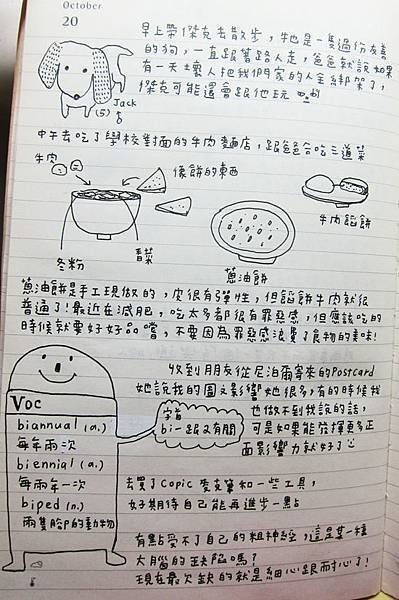 October
20
早上帶傑克去散步，牠也是一隻過份友善
的狗，一直跟著路人走，爸爸就說如果
有一天壞人把我們家的人全綁架了，
傑克可能還會跟他玩
Jack
(5)
中午去吃了學校對面的牛肉麵店，跟爸爸合吃三道菜
牛肉
像餅的東西
冬粉
青菜
蔥油餅
牛肉餡餅
蔥油餅是手工現做的，皮很有彈性，但餡餅牛肉就很
普通了！最近在減肥，吃太多都很有罪惡感，但應該吃的
時候就要好好品嚐，不要因為罪惡感浪費了食物的美味！
收到朋友從尼泊爾寄來的Postcard
她說我的圖文影響她很多，有的時候我
也做不到我說的話，
可是如果能發揮更多正
面影響力就好了
Voc
biannual (a.)
每年兩次
biennial (a.)
每兩年一次
biped (n.)
兩隻腳的動物
字首
bi-跟2有關
去買了Copic麥克筆和一些工具，
好期待自己能再進步一點
有點受不了自己的粗神經，這是某一種
大腦的缺陷嗎？
現在最欠缺的就是細心跟耐心了！